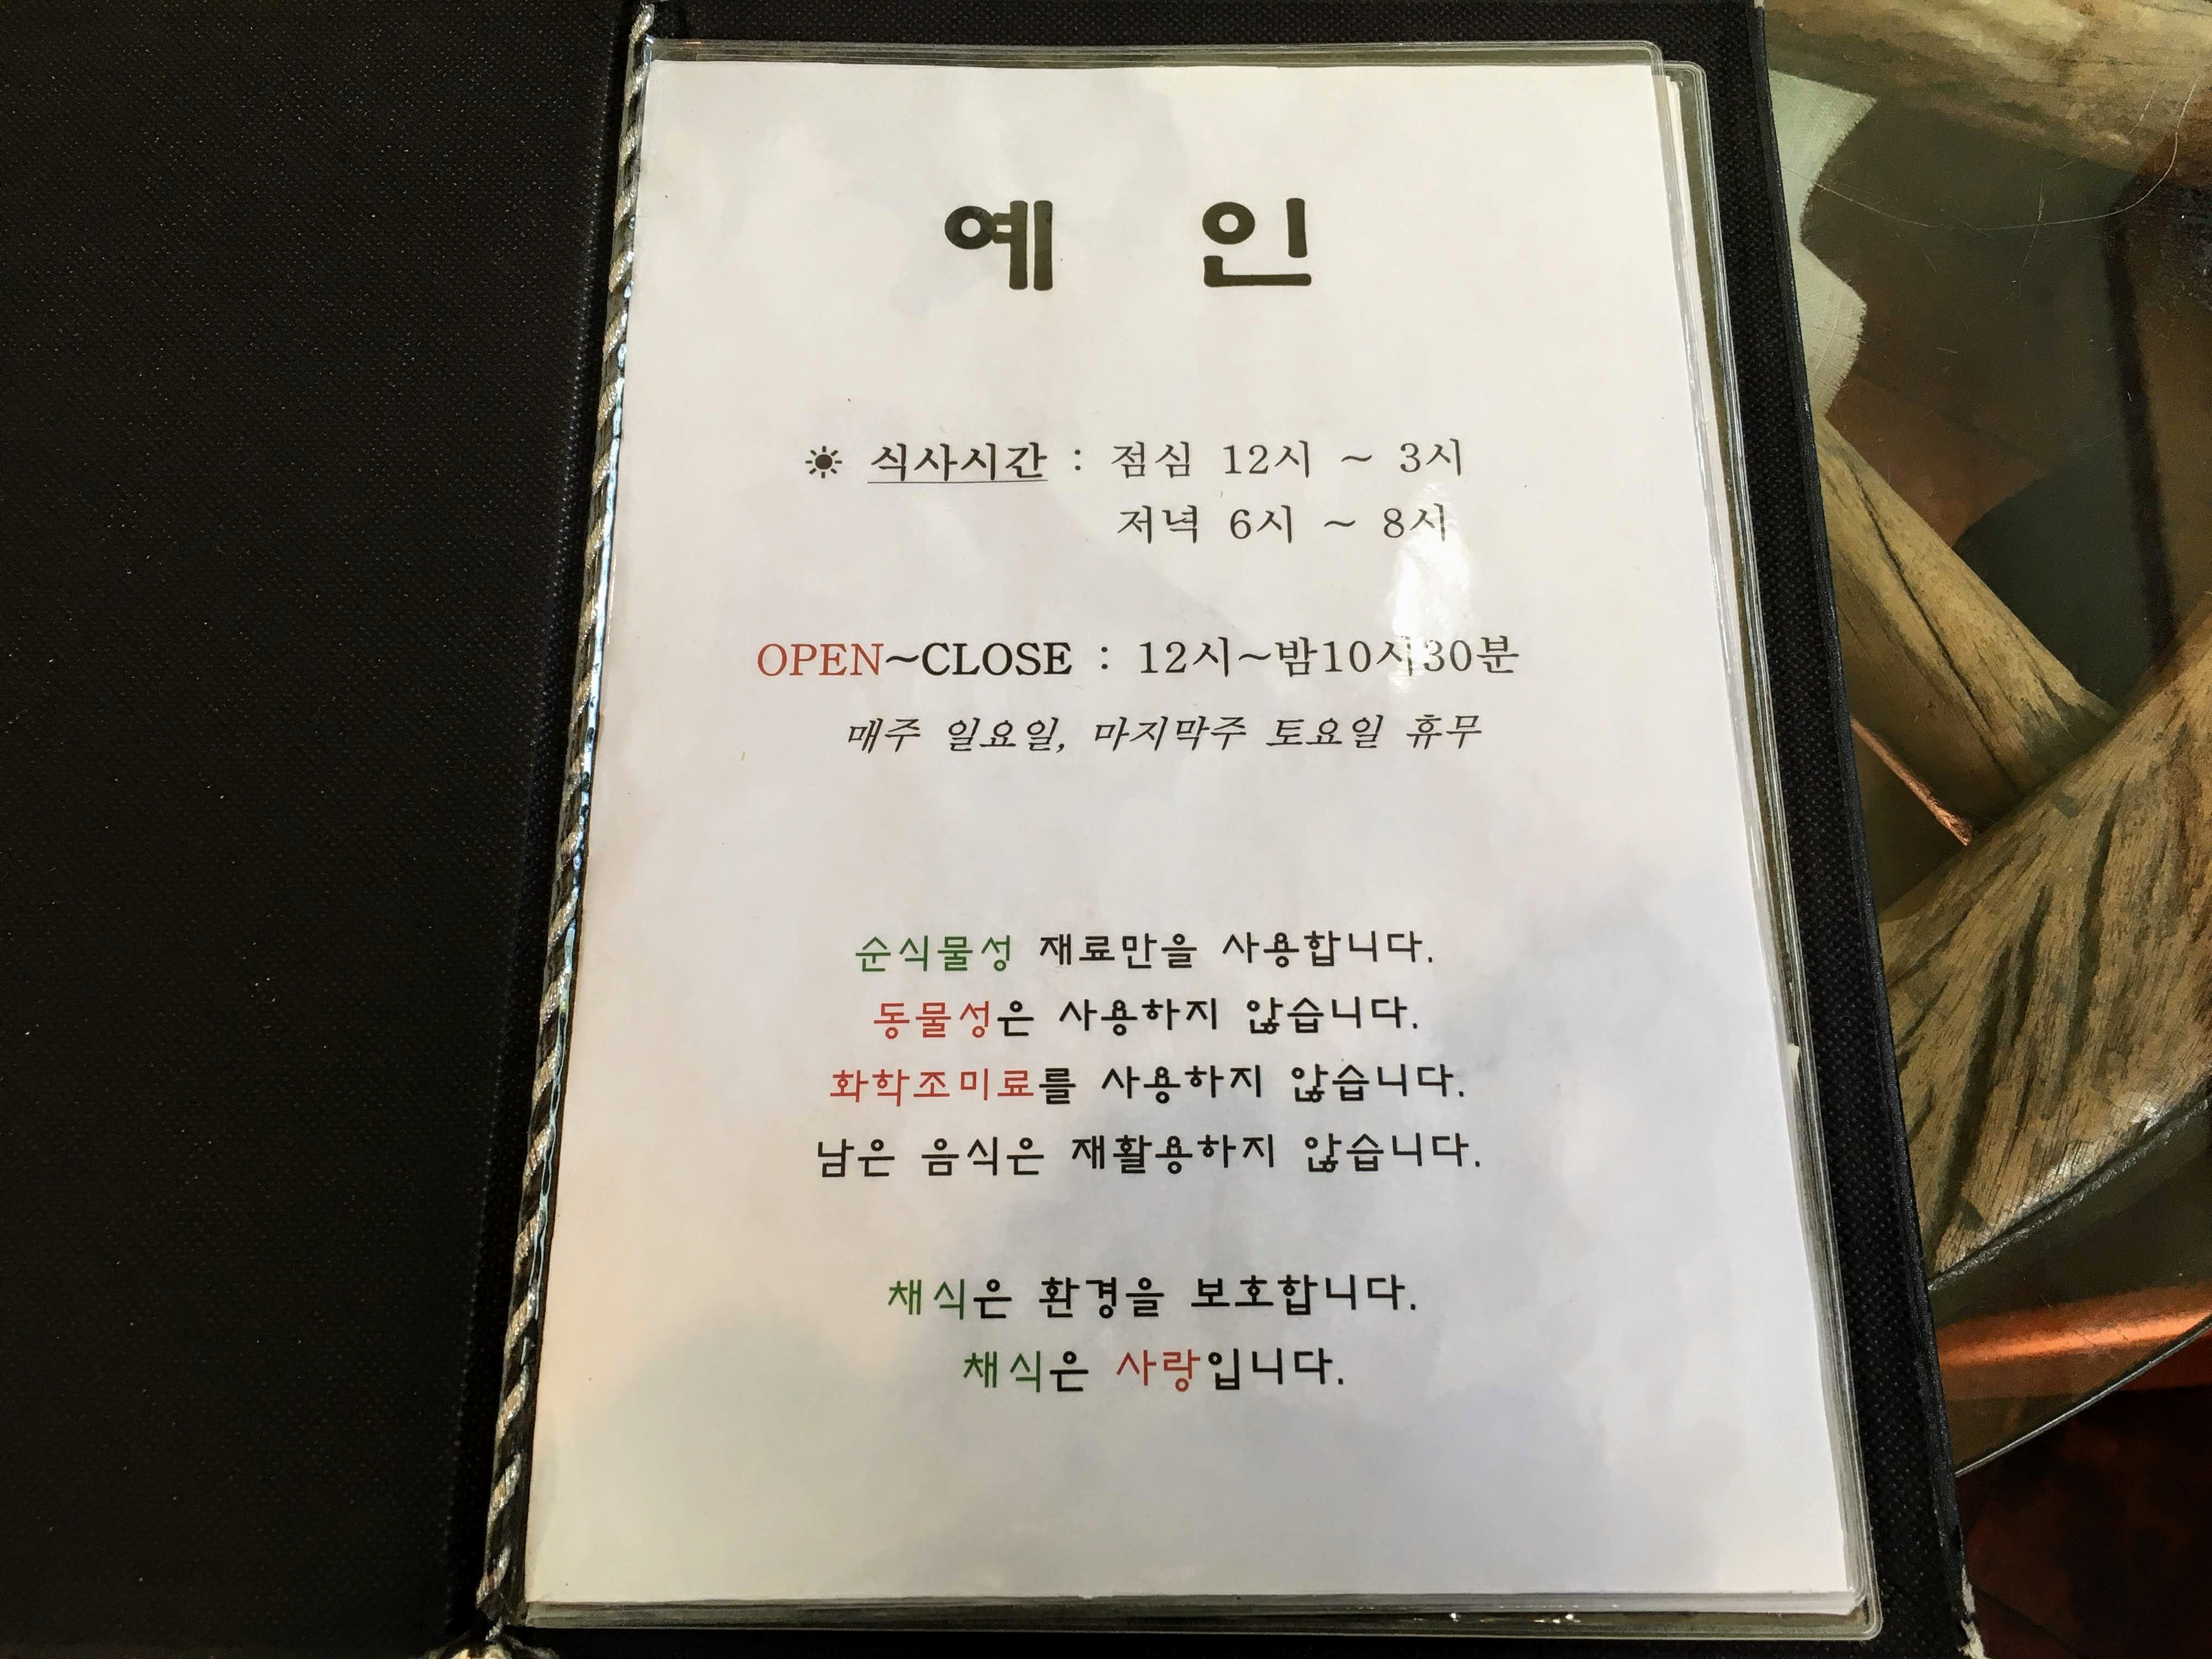 예 인
☀ 식사시간 : 점심 12시 ~ 3시
저녁 6시 ~ 8시
OPEN~CLOSE : 12시~밤10시30분
매주 일요일, 마지막주 토요일 휴무
순식물성 재료만을 사용합니다.
동물성은 사용하지 않습니다.
화학조미료를 사용하지 않습니다.
남은 음식은 재활용하지 않습니다.
채식은 환경을 보호합니다.
채식은 사랑입니다.